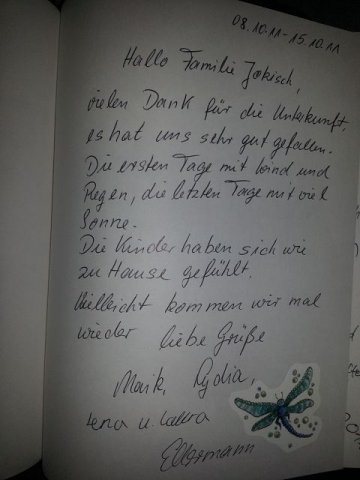 08.10.11-15.10.11
Hallo Familie Jakisch,
vielen Dank für die Unterkunft,
es hat uns sehr gut gefallen.
Die ersten Tage mit Wind und
Regen, die letzten Tage mit viel
Sonne.
Die Kinder haben sich wie
zu Hause gefühlt.
Vielleicht kommen wir mal
wieder liebe Grüße
Maik, Lydia,
Lena u. Laura